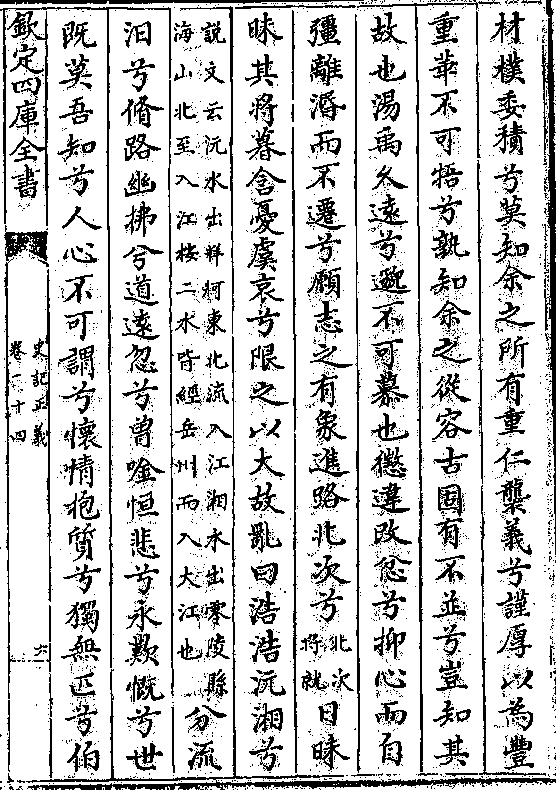 材樸委積兮莫知余之所有重仁襲義兮謹厚以為豐
重華不可牾兮孰知余之從容古固有不並兮豈知其
故也湯禹久遠兮邈不可慕也懲違改忿兮抑心而自
彊離湣而不遷兮願志之有象進路北次兮北次將就日昧
昧其將暮含憂虞哀兮限之以大故亂曰浩浩沅湘兮
說文云沅水出牂柯東北流入江湘水出零陵縣
海山北至入江按二水皆經岳州而入大江也分流
汨兮脩路幽拂兮道遠忽兮曾唫恒悲兮永歎慨兮世
既莫吾知兮人心不可謂兮懷情抱質兮獨無匹兮伯
欽定四庫全書
史記正義
卷 十四
六